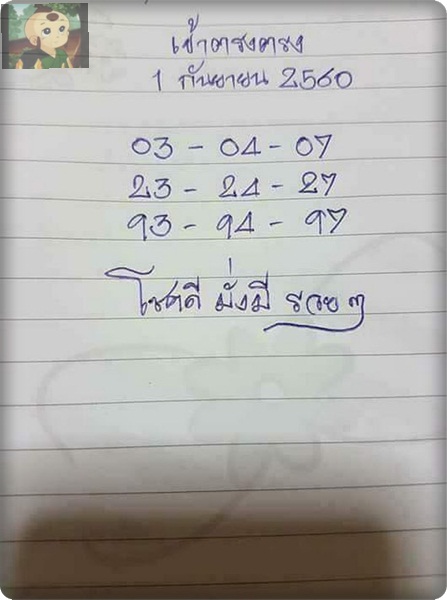 เข้าตรงตรง
1 กันยายน 2560
03 - 04 - 07
23 - 24 - 27
93 - 94 - 97
โชคดี มั่งมี รวย ๆ